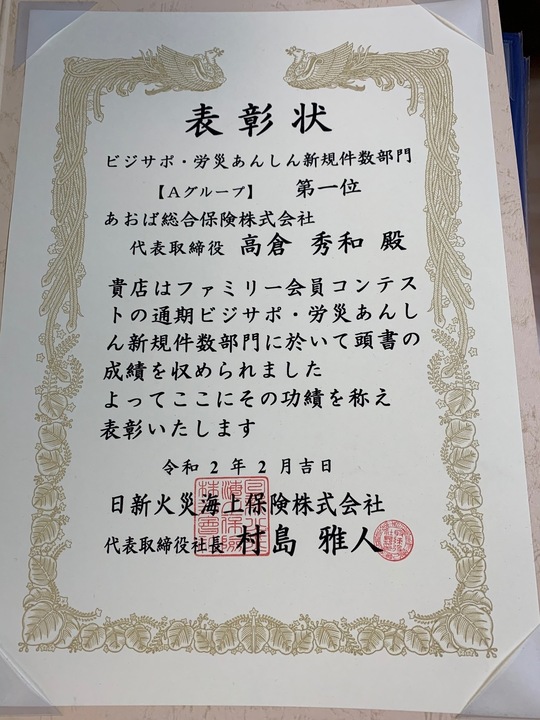 表彰状
ビジサポ・労災あんしん新規件数部門
【Aグループ】 第一位
あおば総合保険株式会社
代表取締役 高倉 秀和 殿
貴店はファミリー会員コンテス
トの通期ビジサポ・労災あんし
ん新規件数部門に於いて頭書の
成績を収められました
よってここにその功績を称え
表彰いたします
令和2年2月吉日
日新火災海上保険株式会社
代表取締役社長 村島 雅人